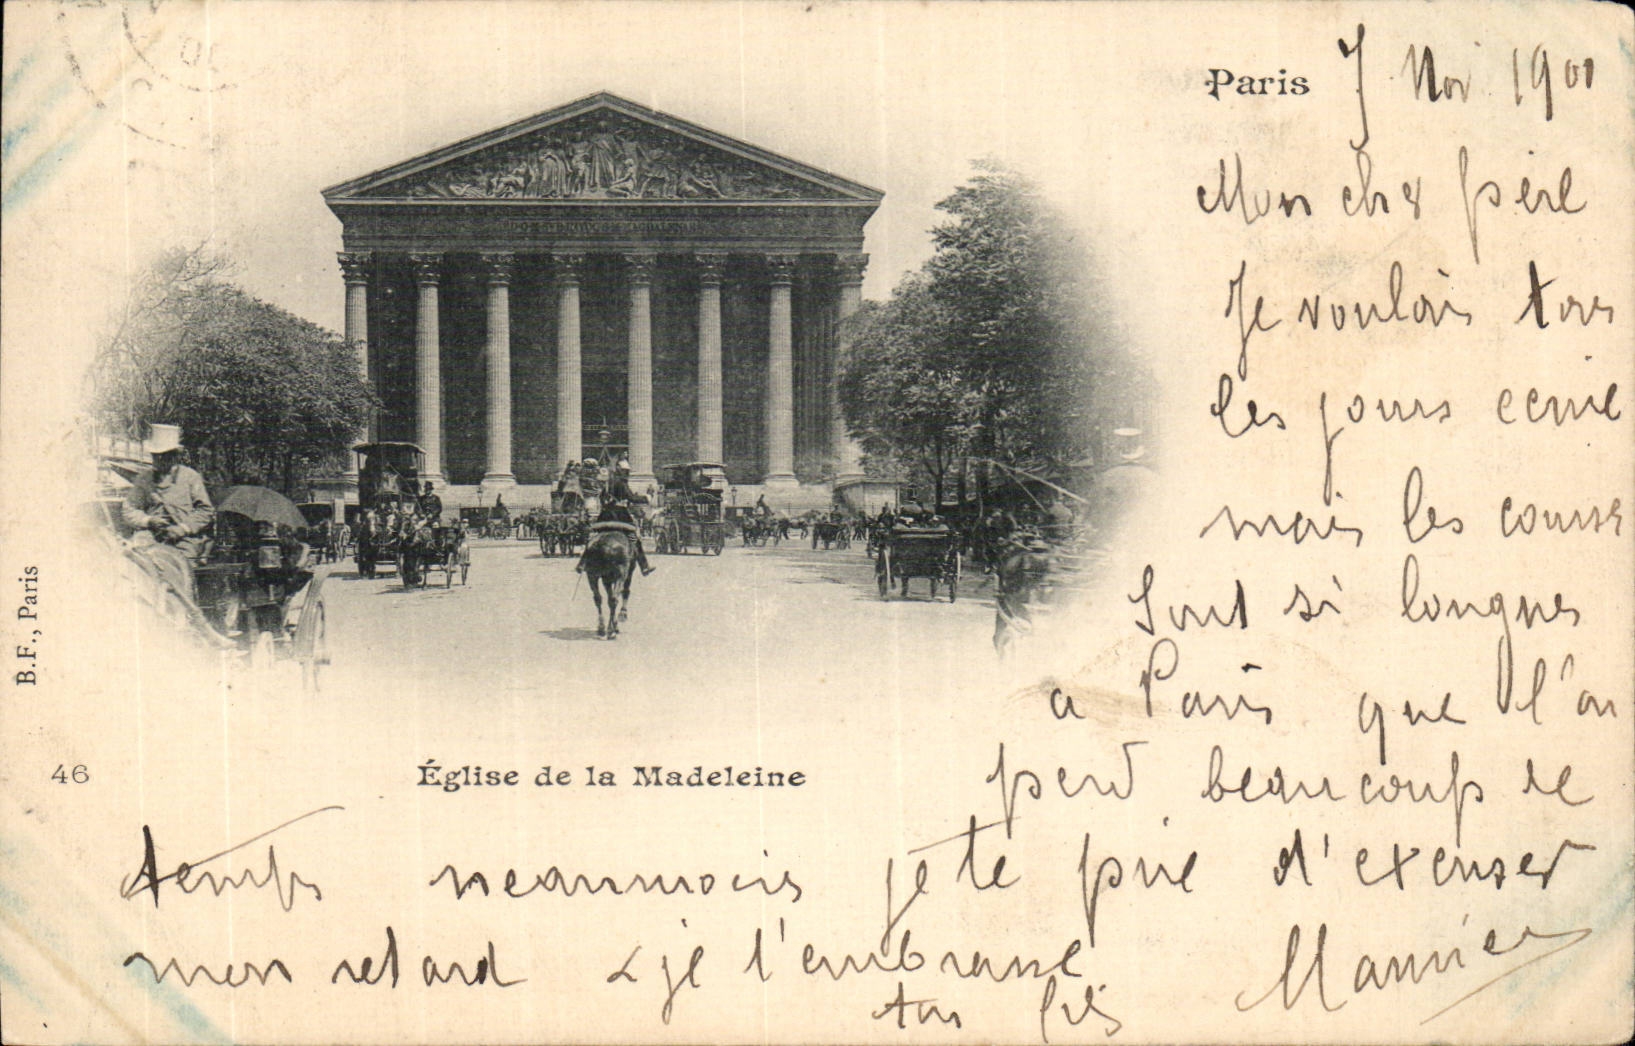 Paris 7 Nov 1901
Mon cher père
Je voulais tous
les jours ecrire
mais les courses
Sont si longues
a Paris que l'on
perd beaucoup de
temps neanmoins je te prie d'excuser
mon retard & je t'embrasse
ton fils
B.F., Paris
46
Église de la Madeleine